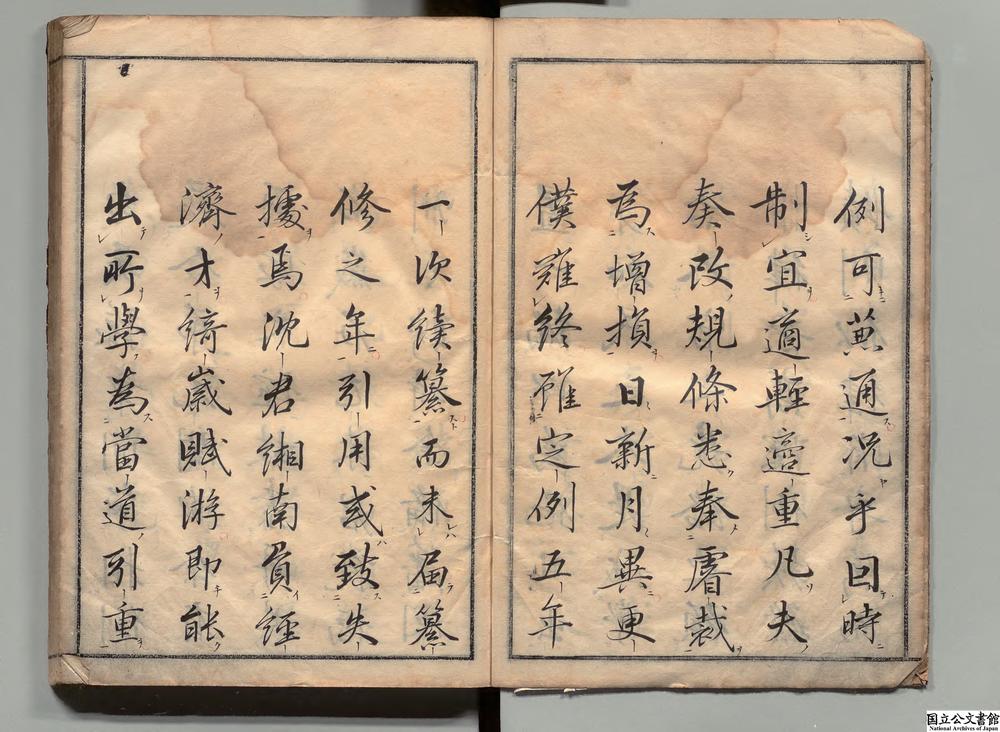 例可兼通况乎因時
制宜適輕適重凡夫
奏改規條悉奉睿裁
焉增損日新月異更
僕難終確定例五年
一次續纂而未屆纂
修之年引用或致失
據焉沈君緗南負經
濟才綺歲賦游即能
出所學為當道引重
国立公文書館
National Archives of Japan